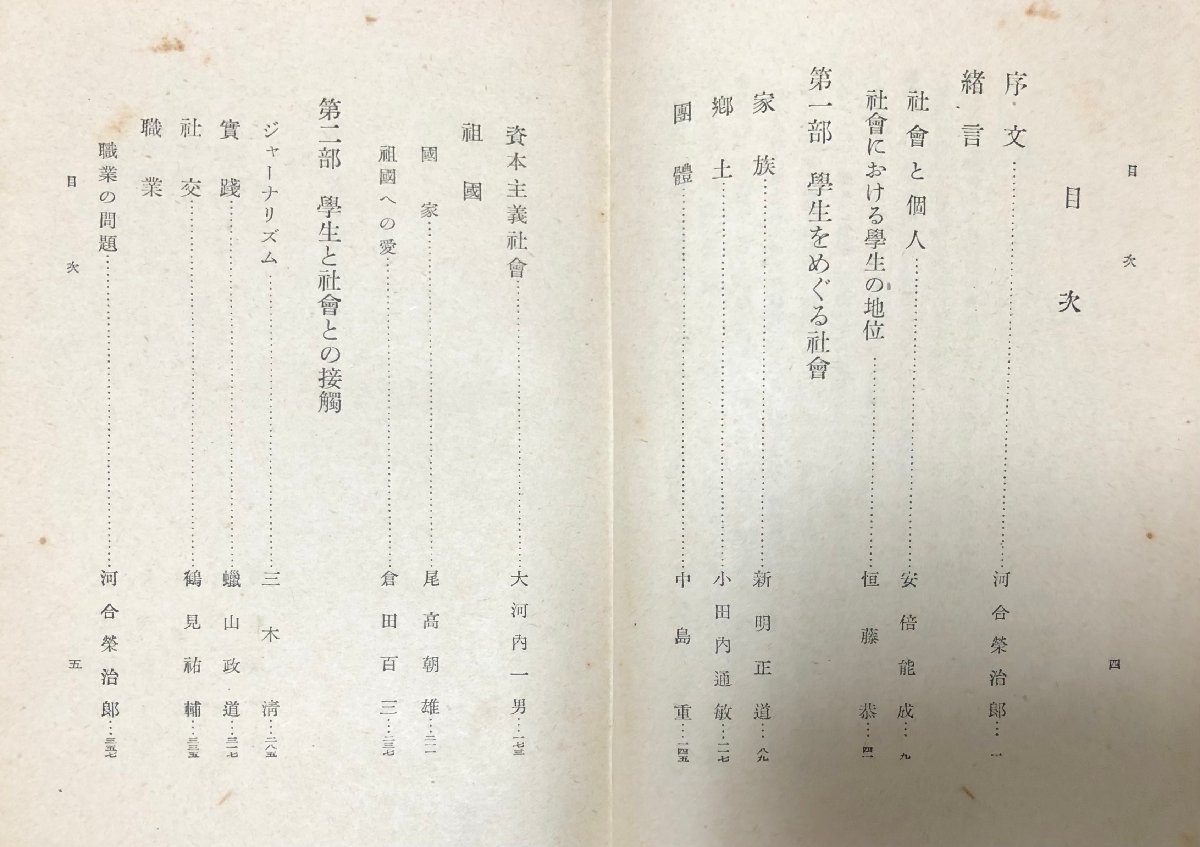 目次
目次
序文……河合榮治郎…一
緒言
社會と個人……安倍能成…九
社會における學生の地位……恒藤恭…四一
第一部　學生をめぐる社會
家族……新明正道…八九
鄕土……小田內通敏…一二七
團體……中島重…一四五
四
資本主義社會……大河內一男…一七三
祖國
國家……尾高朝雄…二一一
祖國への愛……倉田百三…二三七
第二部　學生と社會との接觸
ジャーナリズム……三木淸…二八五
實踐……蠟山政道…三一七
社交……鶴見祐輔…三三五
職業
職業の問題……河合榮治郞…三五七
目次
五